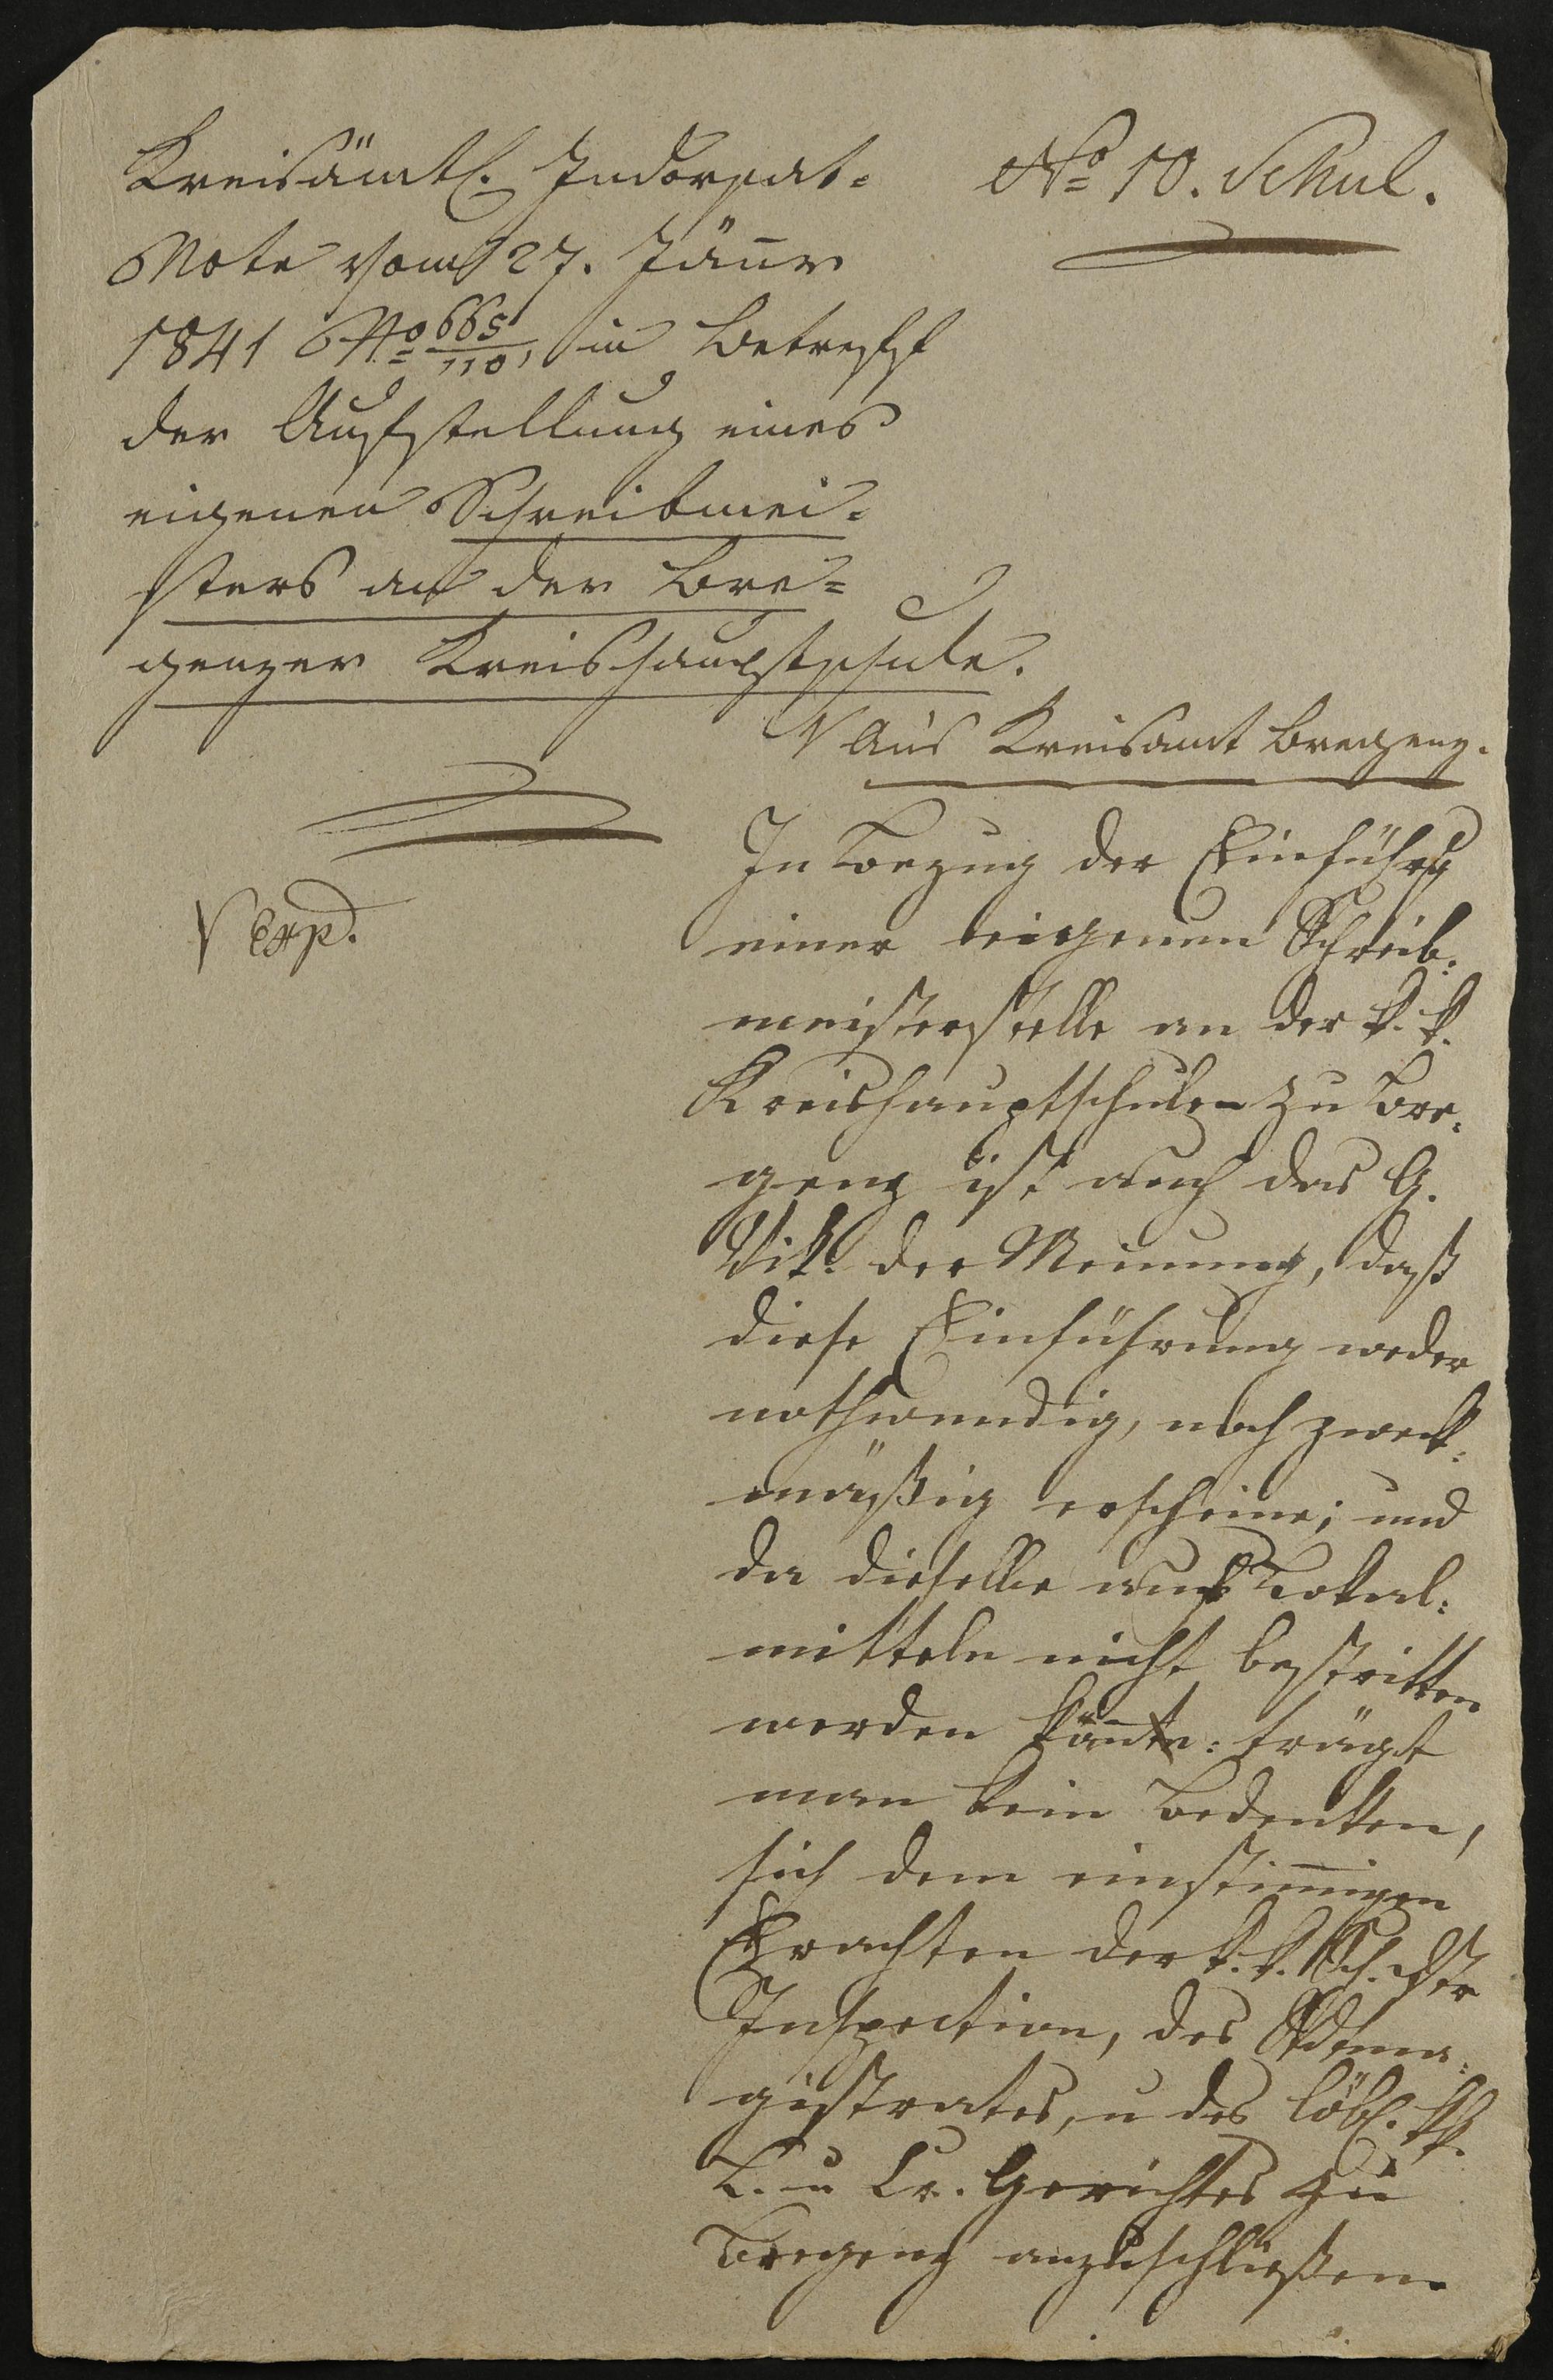 Kreisämtl. Indorsat-
Note vom 27. Jäner
1841 No 665/110, in Betreff
der Aufstellung eines
eigenen Schreibmei-
sters an der Bre=
genzer Kreishauptschule.
No 10. Schul.
Ans Kreisamt Bregenz.
Exp.
In Bezug der Einführg
einer eigenen Schreib-
meisterstelle an der k. k.
Kreishauptschule zu Bre-
genz ist auch das G.
Vik. der Meinung, daß
diese Einführung weder
nothwendig, noch zweck-
mäßig erscheine; und
da dieselbe aus Lokal-
mitteln nicht bestritten
werden könnte: trägt
man kein Bedenken,
sich dem einstimigen
Erachten der k. k. Sch. Distr
Inspection, des Stdtma-
gistrates, u des löbl. kk.
L. u Cr. Gerichtes zu
Bregenz anzuschließen.